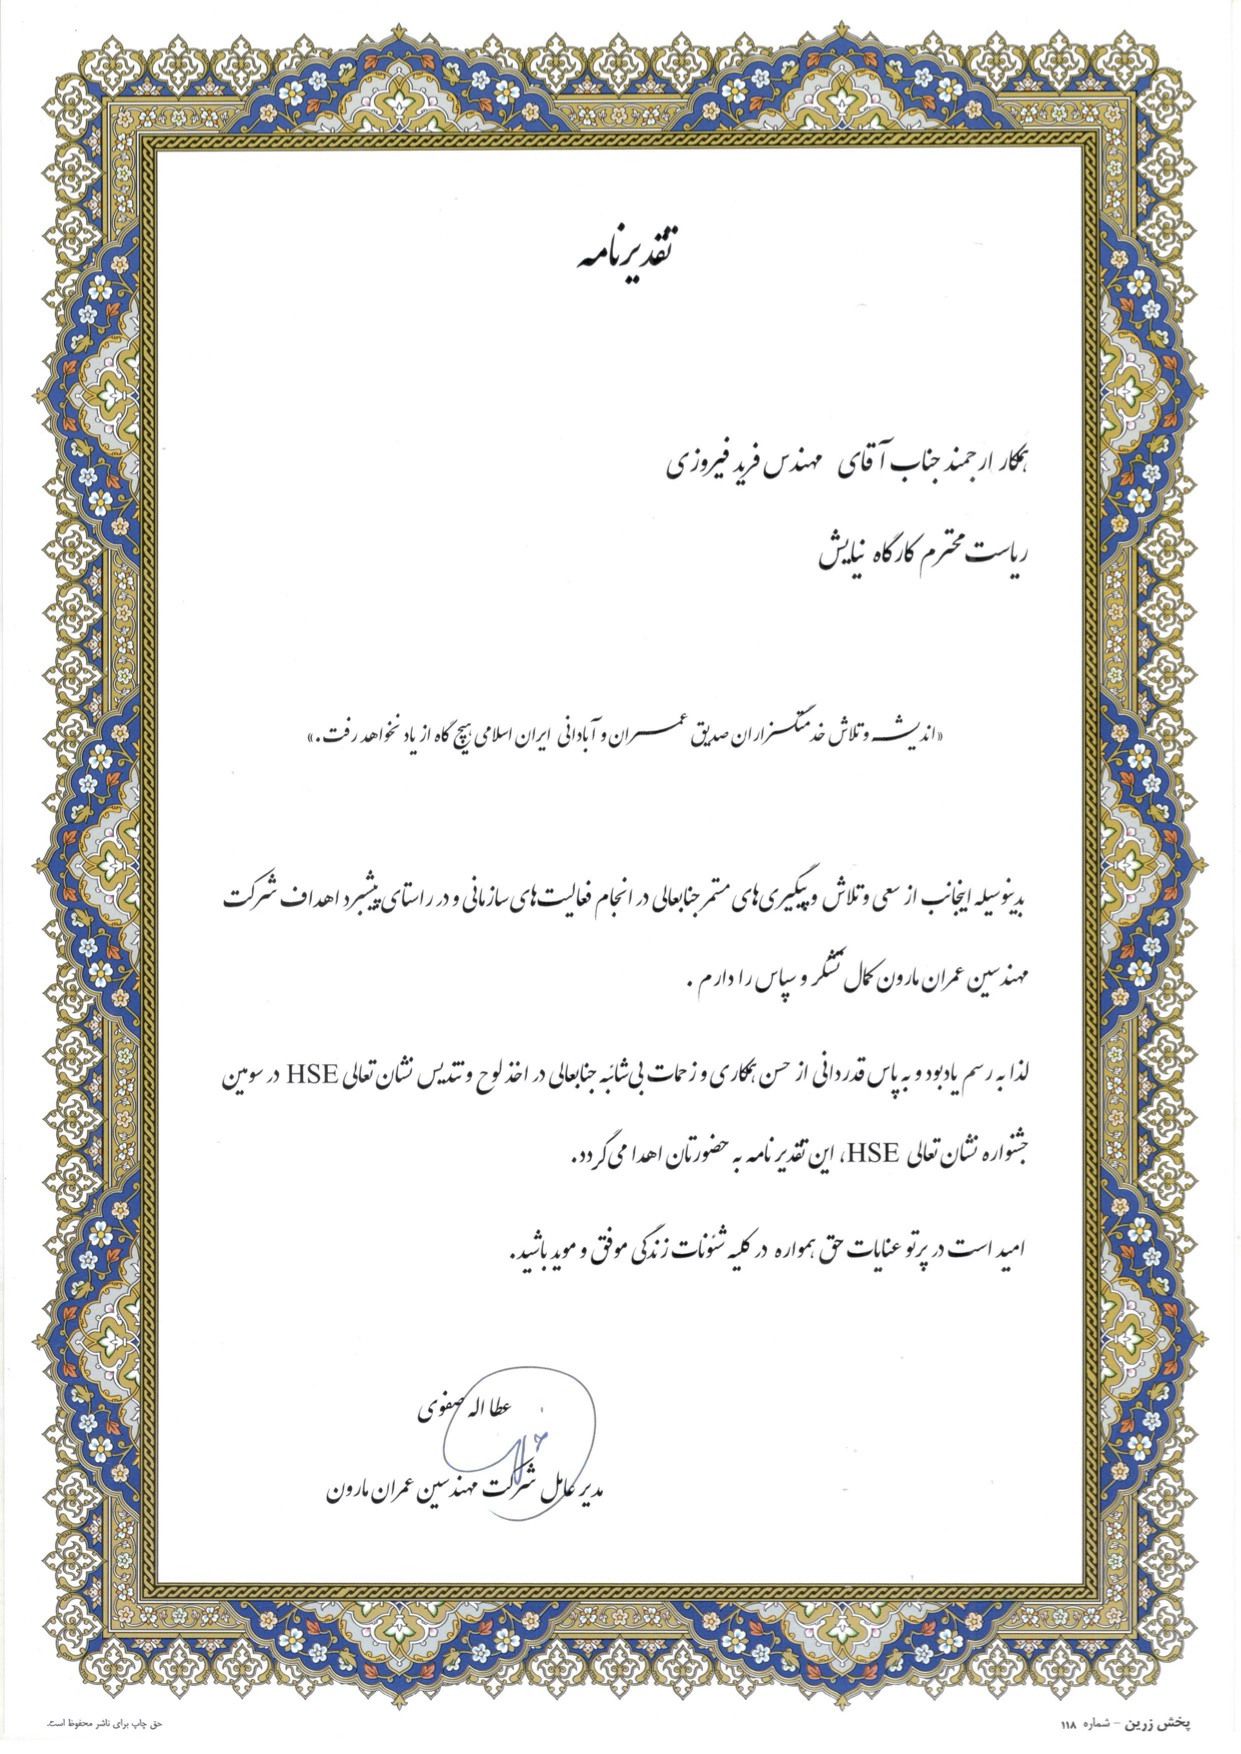 تقدیرنامه
همکار ارجمند جناب آقای مهندس فرید فیروزی
ریاست محترم کارگاه نیایش
«اندیشه و تلاش خدمتگزاران صدیق عمران و آبادانی ایران اسلامی هیچ گاه از یاد نخواهد رفت.»
بدینوسیله اینجانب از سعی و تلاش و پیگیری‌های مستمر جنابعالی در انجام فعالیت‌های سازمانی و در راستای پیشبرد اهداف شرکت
مهندسین عمران مارون کمال تشکر و سپاس را دارم .
لذا به رسم یادبود و به پاس قدردانی از حسن همکاری و زحمات بی‌شائبه جنابعالی در اخذ لوح و تندیس نشان تعالی HSE در سومین
جشنواره نشان تعالی HSE، این تقدیر نامه به حضورتان اهدا می‌گردد.
امید است در پرتو عنایات حق همواره در کلیه شئونات زندگی موفق و موید باشید.
عطا اله صفوی
مدیر عامل شرکت مهندسین عمران مارون
پخش زرین - شماره ۱۱۸
حق چاپ برای ناشر محفوظ است.